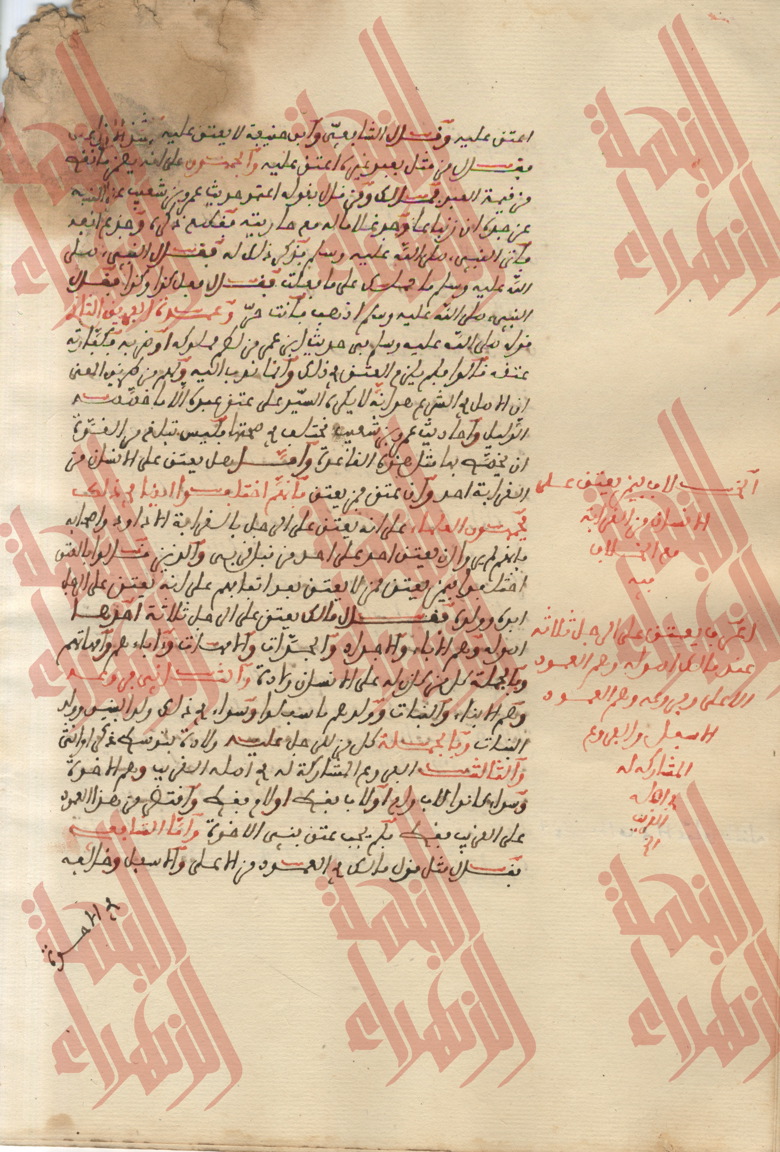 اعتق عليه وقال الشافعي وأبو حنيفة لا يعتق عليه وشذ الأوزاعي
فقال من مثل بعبد غيره اعتق عليه والجمهور على انه يضمن ما نقص
من قيمة العبد فمالك ومن قال بقوله اعتمد حديث عمرو بن شعيب عن ابيه
عن جده ان زنباعا وجد غلاما له مع جاريته فقطع ذكره وجدع انفه
فأتى النبي صلى الله عليه وسلم فذكر ذلك له فقال النبي صلى
الله عليه وسلم ما حملك على ما فعلت فقال فعل كذا وكذا فقال
النبي صلى الله عليه وسلم اذهب فأنت حر وعمدة الفريق الثاني
قوله صلى الله عليه وسلم في حديث ابن عمر من لطم مملوكه او ضربه فكفارته
عتقه قالوا فلم يلزم العتق في ذلك وانما ندب اليه ولهم من طريق المعنى
ان الاصل في الشرع هو انه لا يكره السيد على عتق عبده الا ما خصصه
الدليل وأحاديث عمرو بن شعيب مختلف في صحتها فليس تبلغ من القوة
ان يخصص بها مثل هذه القاعدة وأما هل يعتق على الانسان من
القرابة احد وان عتق فمن يعتق فانهم اختلفوا ايضا في ذلك
فجمهور العلماء على انه يعتق على الرجل بالقرابة الا داود واصحابه
فانهم لم يروا ان يعتق احد على احد من قبل قربى والذين قالوا بالعتق
اختلفوا فيمن يعتق ممن لا يعتق بعد اتفاقهم على انه يعتق على الرجل
ابوه وولده فقال مالك يعتق على الرجل ثلاثة احدها
اصوله وهم الاباء والاجداد والجدات والامهات وءاباءهم وأمهاتهم
وبالجملة كل من كان له على الانسان ولادة والثاني فروعه
وهم الابناء والبنات وولدهم ما سفلوا وسواء في ذلك ولد البنين وولد
البنات وبالجملة كل من للرجل عليه ولادة بتوسط ذكر او انثى
والثالث الفروع المشاركة له في اصله القريب وهم الاخوة
وسواء كانوا لاب وام او لاب فقط او لام فقط واقتصر من هذا العمود
على القريب فقط فلم يجب عتق بني الاخوة وأما الشافعي
فقال مثل قول مالك في العمود من الاعلى والاسفل وخالفه
في الاخوة
الخلاف فيمن يعتق على
الانسان من القرابة
مع الخلاف
فيه
اعرف ما يعتق على الرجل ثلاثة
عند مالك اصوله وهم العمود
الاعلى وفروعه وهم العمود
الاسفل والفروع
المشاركة له
في اصله
القريب
الخ